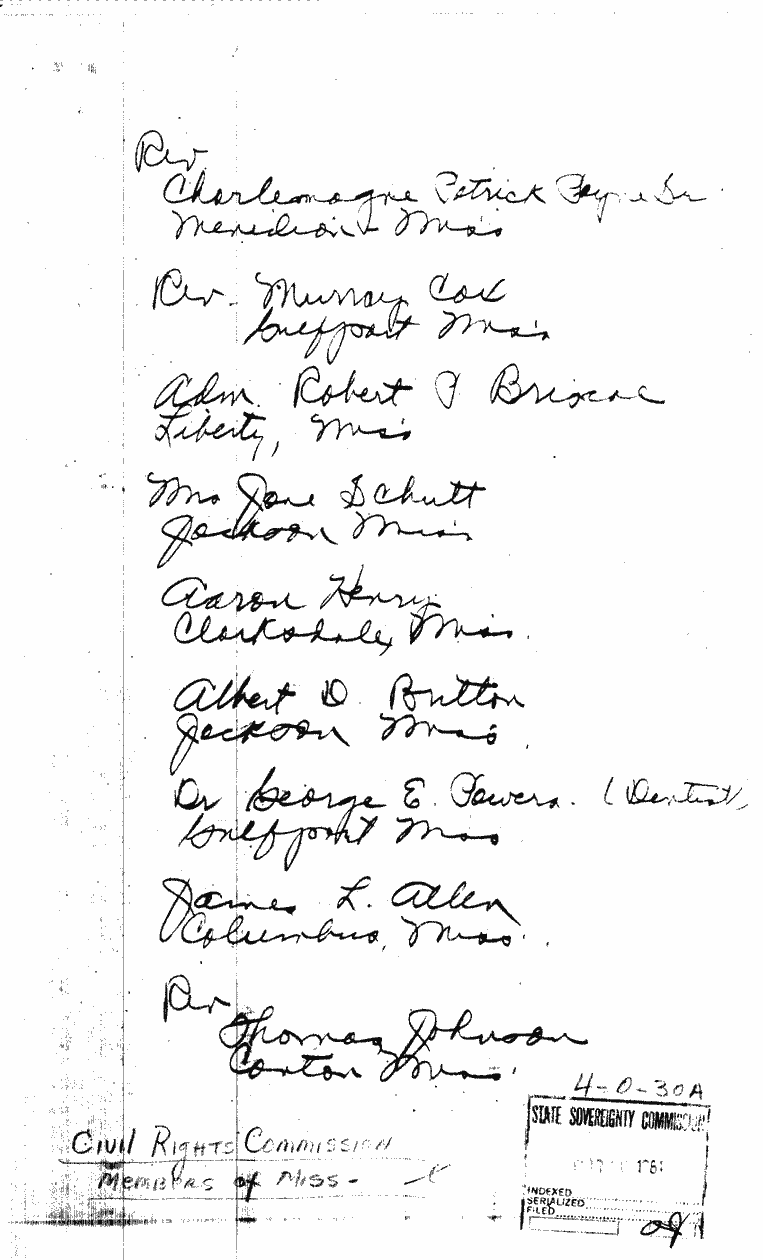 Rev
Charlemagne Patrick Payne Sr
Meridian Miss
Rev. Murray Cox
Gulfport Miss
Adm. Robert P Briscoe
Liberty, Miss
Mrs Jane Schutt
Jackson Miss
Aaron Henry
Clarksdale, Miss.
Albert D. Britton
Jackson Miss.
Dr George E. Powers. (Dentist)
Gulfport Miss
James L. Allen
Columbus, Miss.
Rev
Thomas Johnson
Canton Miss.
4-0-30A
STATE SOVEREIGNTY COMMISSION
INDEXED
SERIALIZED
FILED
Civil Rights Commission
Members of Miss -